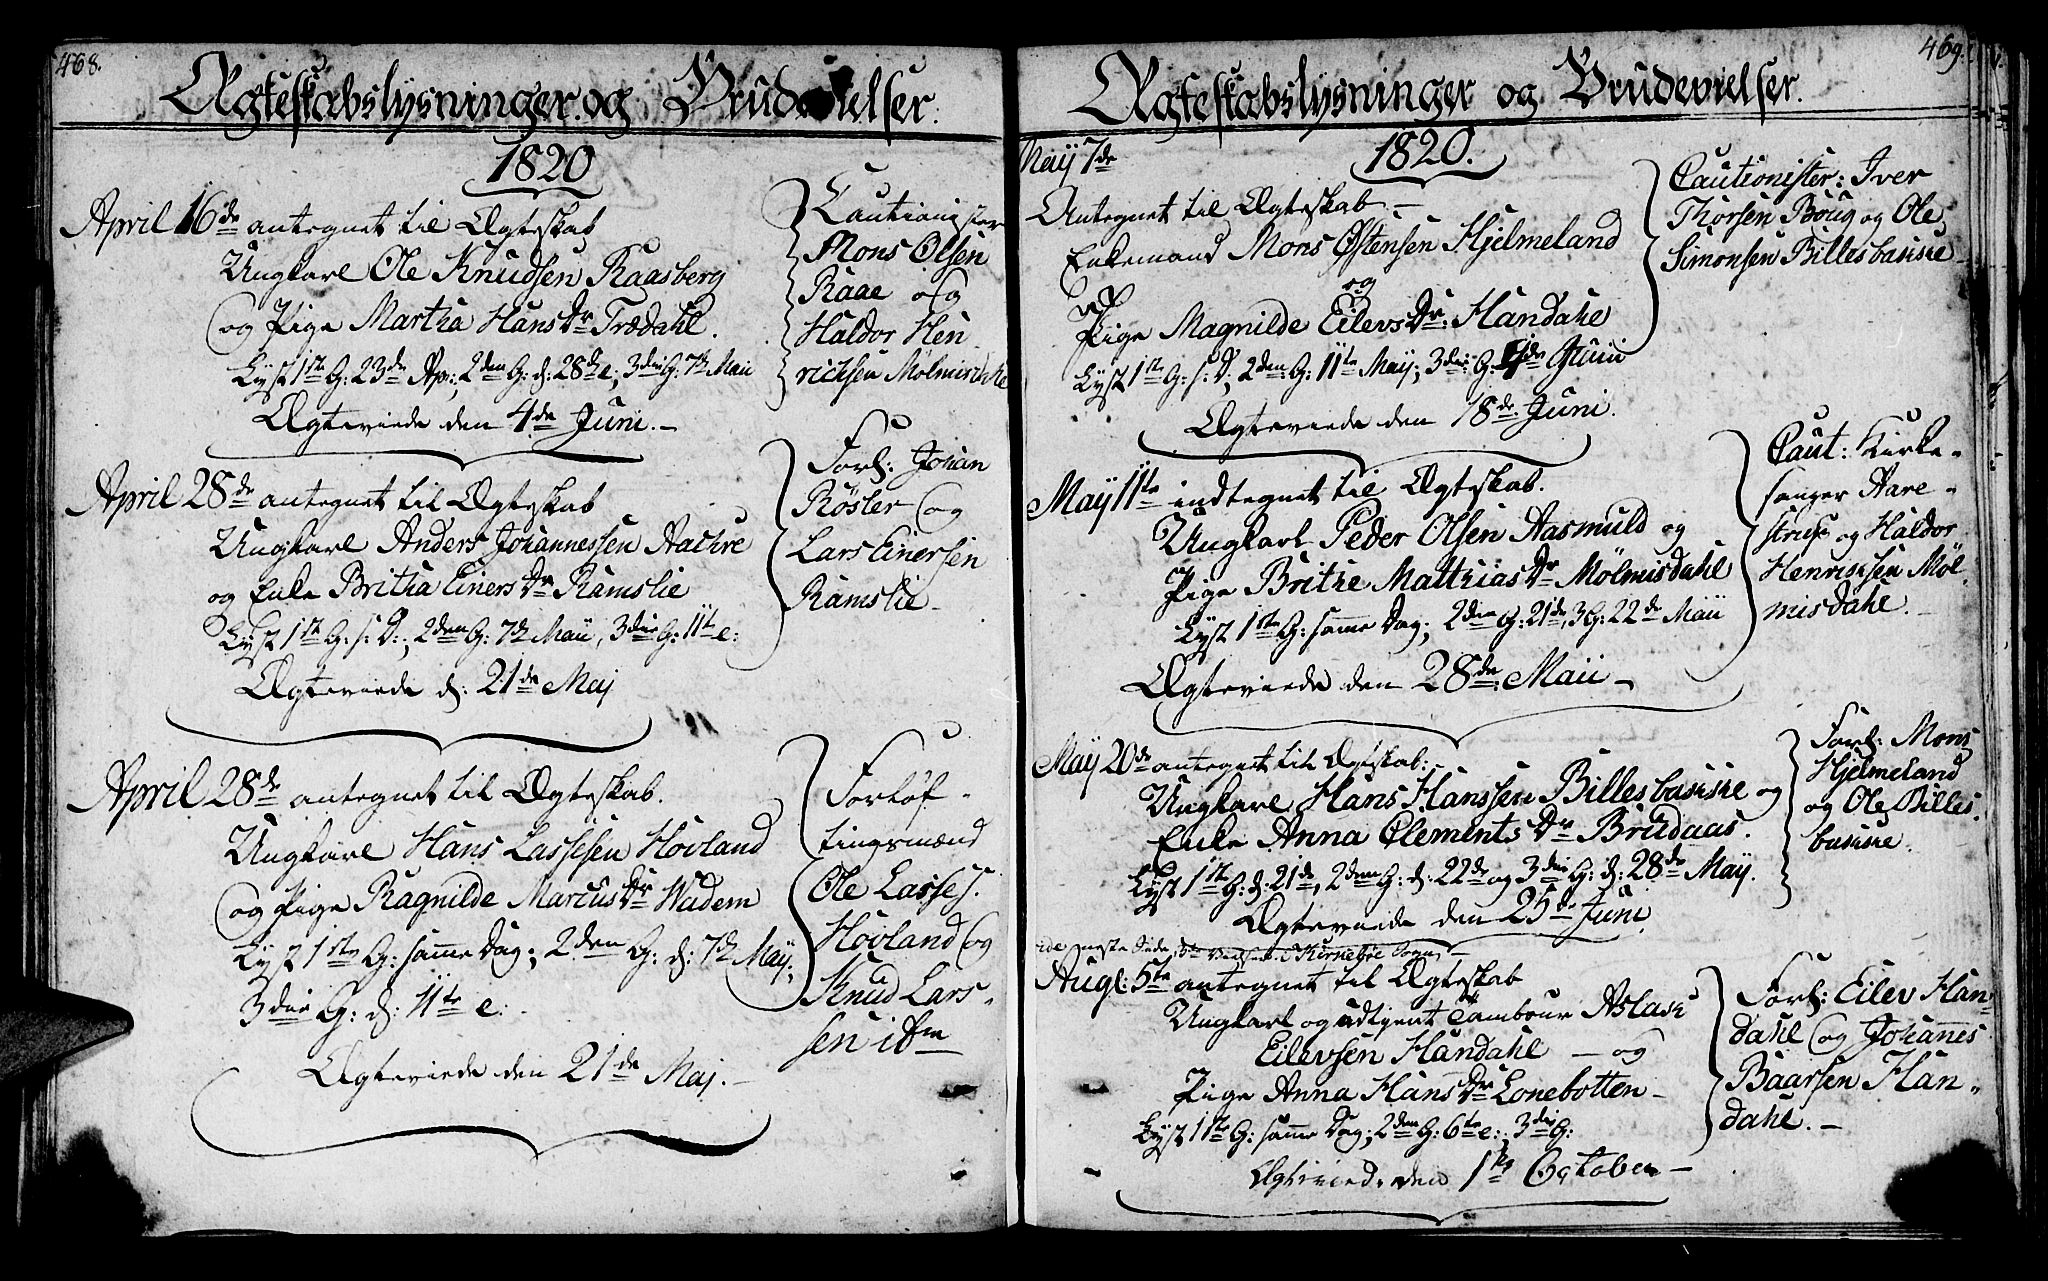 468.
Ægteskabslysninger og Brudevielser.
1820
April 16de antegnet til Ægteskab
Ungkarl Ole Knudsen Raasberg
og Pige Martha HansDr Trædahl.
Lyst 1ste G: 23de Ap:, 2den G: d: 28de e:, 3die G: 7de Maii
Ægteviede den 4de Juni.
Cautionister
Mons Olsen
Raae og
Haldor Hen
richsen Mølmisdahle
April 28de antegnet til Ægteskab
Ungkarl Anders Johannessen Aachre
og Enke Britha EinersDr Ramslie
Lyst 1ste G: s: D:, 2den G: 7de Maii, 3die G: 11te e:
Ægteviede d: 21de Maj
Forl: Johan
Røsler og
Lars Einersen
Ramslie
April 28de antegnet til Ægteskab.
Ungkarl Hans Lassesen Hovland
og Pige Ragnilde MarcusDr Wadem
Lyst 1ste G: samme Dag; 2den G: d: 7de Maij;
3die G: d: 11te e:
Ægteviede den 21de Maj.
Forløf-
tingsmænd
Ole Lasses:
Hovland og
Knud Lars-
sen ibm
469.
Ægteskabslysninger og Brudevielser.
1820.
Maij 7de
Antegnet til Ægteskab
Enkemand Mons Østensen Hjelmeland
og
Pige Magnilde EilevsDr: Handahl
Lyst 1ste G: s: D:, 2den G: 11te Maij; 3die G: Juni
Ægteviede den 18de Juni.
Cautionister: Iver
Thorsen Boug og Ole
Simonsen Billesbakke
May 11te indtegnet til Ægteskab.
Ungkarl Peder Olsen Aasmuld og
Pige Brithe MatthiasDr Mølmisdahl
Lyst 1ste G: samme Dag; 2den G: 21de, 3 G: 22de Maii
Ægteviede den 28de Maii
Caut: Kirke-
sanger Aare-
strup og Haldor
Henricksen Møl-
misdahl.
May 20de antegnet til Ægteskab:
Ungkarl Hans Hanssen Billesbakke og
Enke Anna ClementsDr Brudaas.
Lyst 1ste G: d: 21de, 2den G: d: 22de og 3die G: d: 28de May.
Ægteviede den 25de Juni
Forl: Mons
Hjelmeland
og Ole Billes-
bakke.
næste Side Sogn
Aug: 5te antegnet til Ægteskab
Ungkarl og udtjent Tambour Aslak
Eilevsen Handahl og
Pige Anna HansDr Lonebotten
Lyst 1ste G: samme Dag; 2den G: 6te e:, 3die G:
Ægteviede den 1te October
Forl: Eilev Han-
dahl og Johannes
Baarsen Han-
dahl.